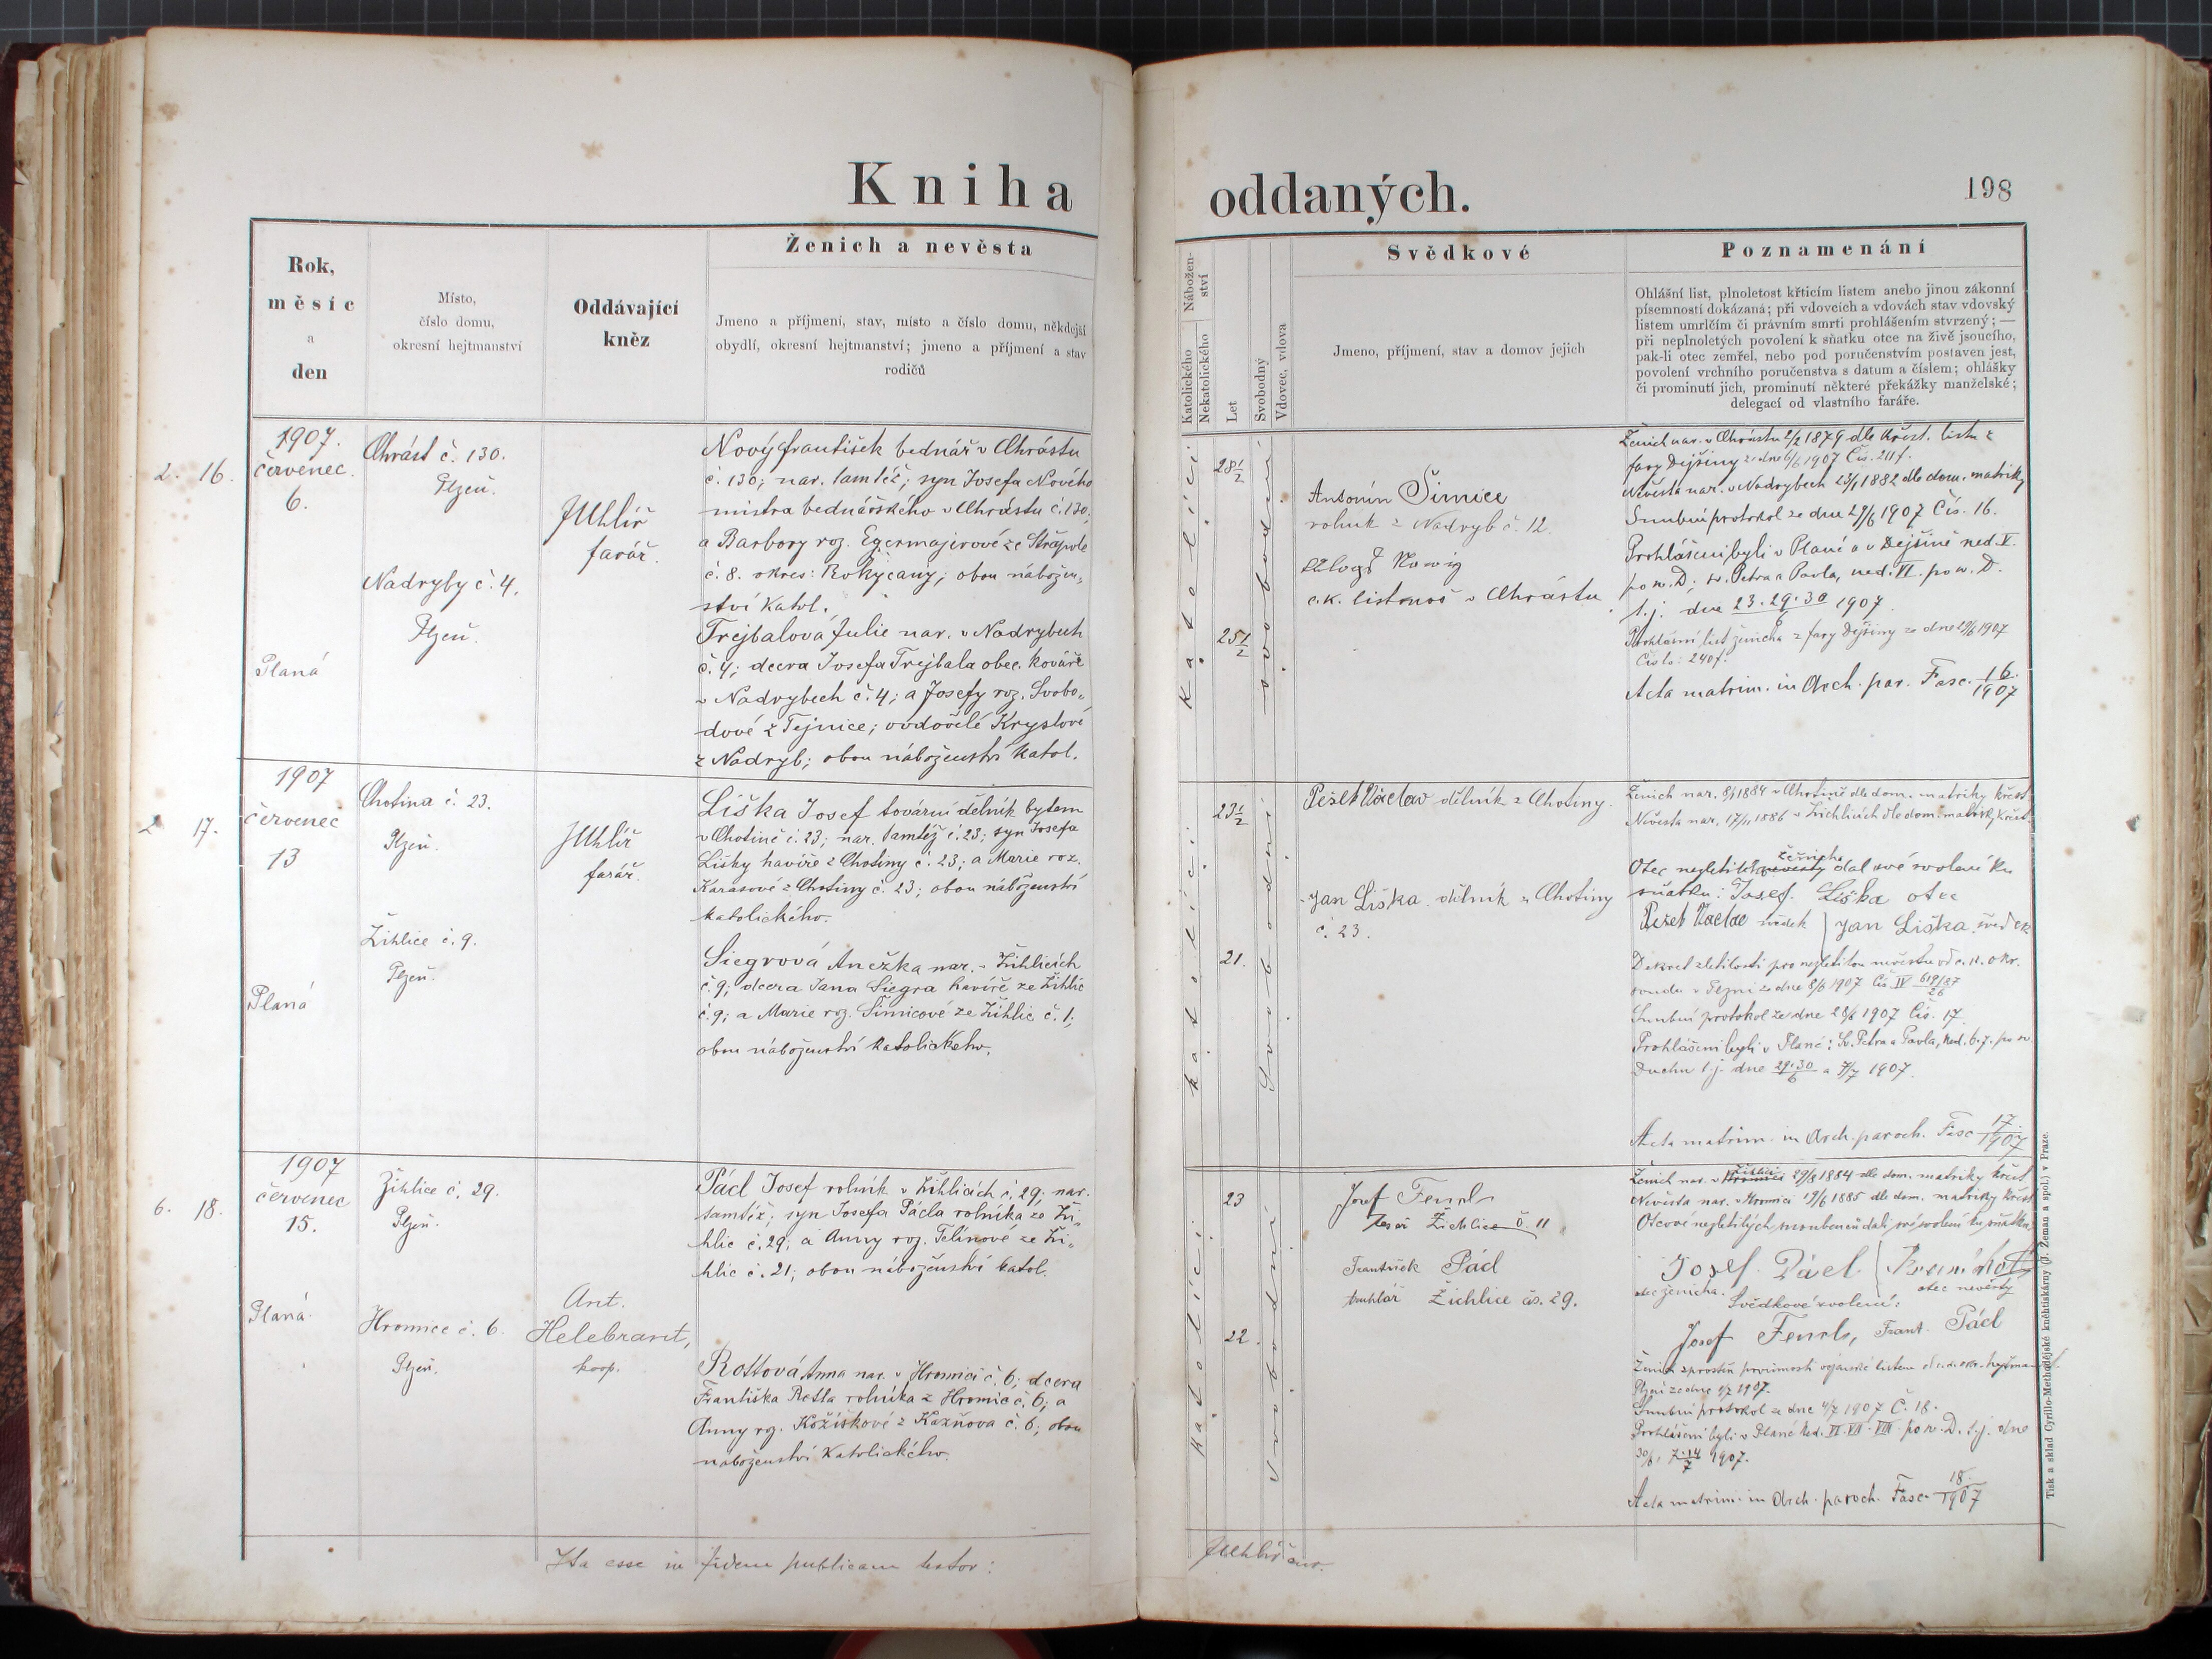 Kniha oddaných.
198
Rok,
měsíc
a
den
Místo,
číslo domu,
okresní hejtmanství
Oddávající
kněz
Ženich a nevěsta
Jmeno a příjmení, stav, místo a číslo domu, někdejší
obydlí, okresní hejtmanství; jmeno a příjmení a stav
rodičů
Nábožen-
ství
Katolického
Nekatolického
Let
Svobodný
Vdovec, vdova
Svědkové
Jmeno, příjmení, stav a domov jejich
Poznamenání
Ohlášní list, plnoletost křticím listem anebo jinou zákonní
písemností dokázaná; při vdovcích a vdovách stav vdovský
listem umrlčím či právním smrti prohlášením stvrzený; —
při neplnoletých povolení k sňatku otce na živě jsoucího,
pak-li otec zemřel, nebo pod poručenstvím postaven jest,
povolení vrchního poručenstva s datum a číslem; ohlášky
či prominutí jich, prominutí některé překážky manželské;
delegací od vlastního faráře.
2. 16.
1907.
červenec
6.
Planá
Chrást č. 130.
Plzeň.
Nadryby č. 4.
Plzeň.
JUhlíř
farář.
Nový František bednář v Chrástu
č. 130; nar. tamtéž; syn Josefa Nového
mistra bednářského v Chrástu č. 130;
a Barbory roz. Egermajerové ze Střapole
č. 8. okres: Rokycany; obou nábožen-
ství katol.
Trejbalová Julie nar. v Nadrybech
č. 4; dcera Josefa Trejbala obec. kováře
v Nadrybech č. 4; a Josefy roz. Svobo-
dové z Tejnice; ovdovělé Krystové
z Nadryb; obou náboženství katol.
katolíci
28½
25½
svobodní
Antonín Šimice
rolník z Nadryb č. 12.
c.k. listonoš v Chrástu
Ženich nar. v Chrástu 2/2 1879 dle křest. listu z
fary Dejšiny ze dne 6/6 1907 Čís. 211f.
Nevěsta nar. v Nadrybech 23/1 1882 dle dom. matriky
Snubní protokol ze dne 29/6 1907 Čís. 16.
Prohlášeni byli v Plané a v Dejšině ned. V.
po sv. D; sv. Petra a Pavla, ned. VI. po sv. D.
t.j. dne 23. 29. 30 1907.
Prohlášní list ženicha z fary Dejšiny ze dne 29/6 1907
Číslo: 240f.
Acta matrim. in Arch. par. Fasc. 16/1907
2 17.
1907
červenec
13
Planá
Chotina č. 23.
Plzeň.
Žihlice č. 9.
Plzeň.
JUhlíř
farář.
Liška Josef tovární dělník bytem
v Chotině č. 23; nar. tamtéž č. 23; syn Josefa
Lišky havíře z Chotiny č. 23; a Marie roz.
Karasové z Chotiny č. 23; obou náboženství
katolického.
Siegrová Anežka nar. v Žihlicích
č. 9; dcera Jana Siegra havíře ze Žihlic
č. 9; a Marie roz. Šimicové ze Žihlic č. 1;
obou náboženství katolického.
katolíci
23½
21.
Svobodní
Pešek Václav dělník z Chotiny.
Jan Liška dělník z Chotiny
č. 23.
Ženich nar. 8/1 1884 v Chotině dle dom. matriky křest.
Nevěsta nar. 17/11 1886 v Žichlicích dle dom. matriky křest.
Otec nezletilého nevěsty ženicha dal své svolení ku
sňatku: Josef. Liška otec
Pešek Václav svědek Jan Liška svědek
Dekret zletilosti pro nezletilou nevěstu od c. k. okr.
soudu v Plzni ze dne 8/6 1907 Čís IV
Snubní protokol ze dne 28/6 1907 Čís. 17.
Prohlášeni byli v Plané: Sv. Petra a Pavla, Ned. 6. 7. po sv.
Duchu t.j. dne 29. 30/6 a 7/7 1907.
Acta matrim. in Arch. paroch. Fasc 17/1907
6. 18.
1907
červenec
15.
Planá
Žihlice č. 29.
Plzeň.
Hromice č. 6.
Plzeň.
Ant.
Helebrant,
koop.
Pácl Josef rolník v Žihlicích č. 29; nar.
tamtéž; syn Josefa Pácla rolníka ze Ži-
hlic č. 29; a Anny roz. Telínové ze Ži-
hlic č. 21; obou náboženství katol.
Rottová Anna nar. v Hromici č. 6; dcera
Františka Rotta rolníka z Hromic č. 6; a
Anny roz. Kožíškové z Kaznova č. 6; obou
náboženství katolického.
katolíci
23
22
svobodní
Josef
tesař Žichlice č. 11
František Pácl
truhlář Žichlice čs. 29.
Ženich nar. v Hromici Žihlici 29/8 1884 dle dom. matriky křest
Nevěsta nar. v Hromici 19/6 1885 dle dom. matriky křest
Otcové nezletilých snoubenců dali své svolení ku sňatku:
Josef Pácl
otec ženicha. otec nevěsty
Svědkové svolení:
Josef Frant. Pácl
Plzni ze dne 1/7 1907.
Snubní protokol ze dne 4/7 1907 Č. 18.
Prohlášeni byli v Plané Ned. VI. VII. VIII. po sv. D. t.j. dne
30/6, 7. 14/7 1907.
Acta matrim. in Arch. paroch. Fasc. 18/1907
Ita esse in fidem publicam testor:
JUhlíř
Tisk a sklad Cyrillo-Methodějské knihtiskárny (J. Zeman a spol.) v Praze.